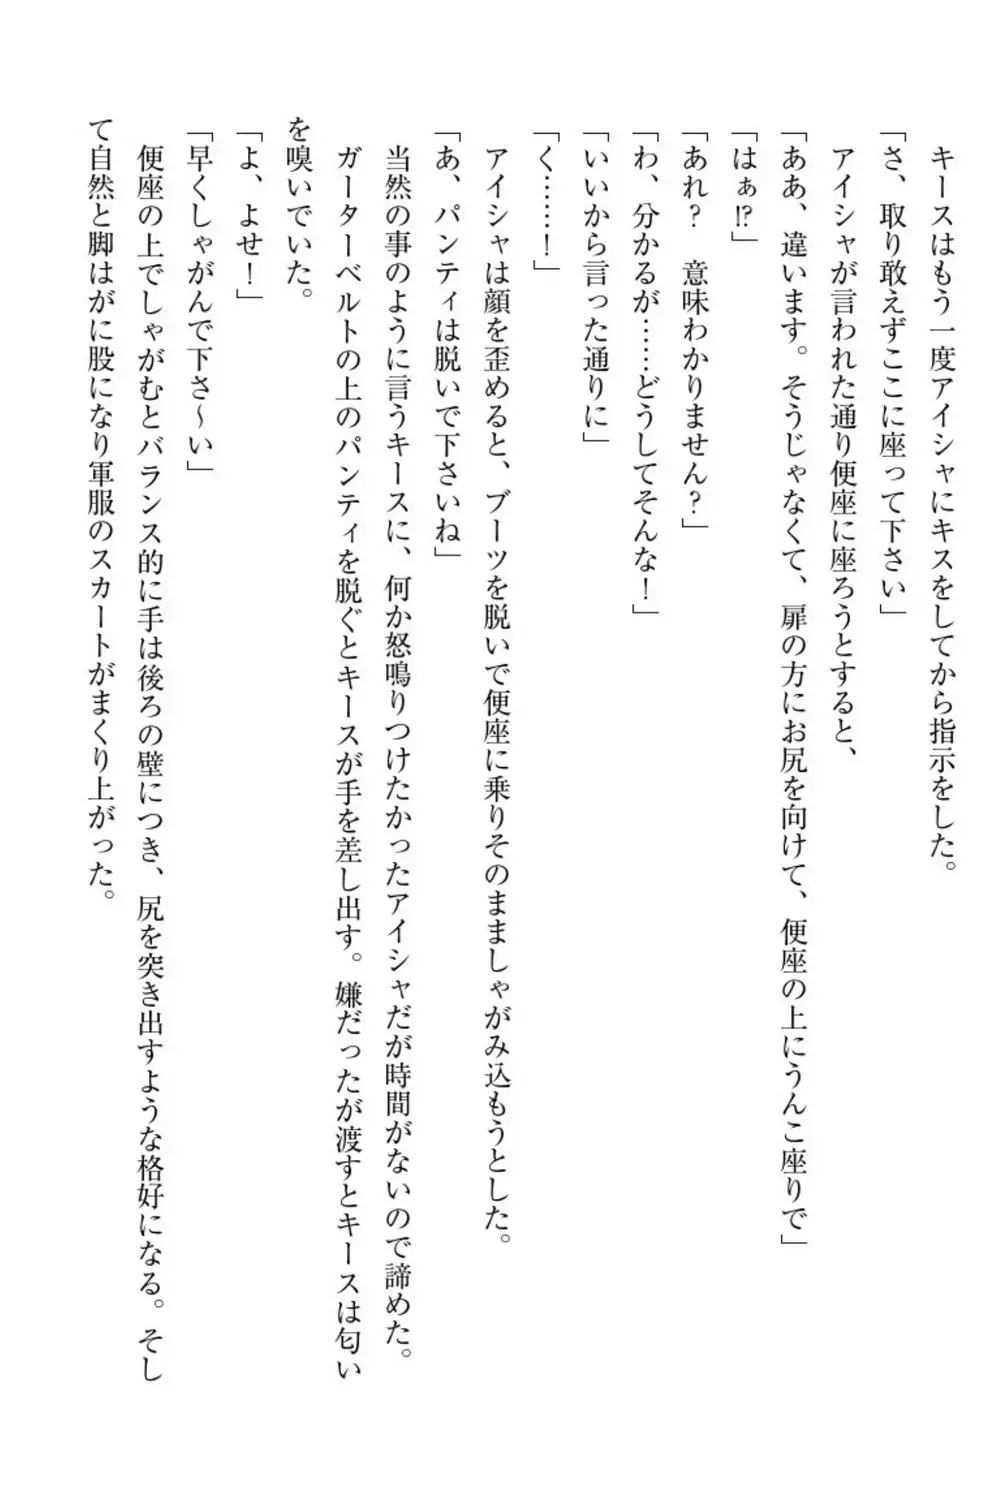 キースはもう一度アイシャにキスをしてから指示をした。
「さ、取り敢えずここに座って下さい」
アイシャが言われた通り便座に座ろうとすると、
「ああ、違います。そうじゃなくて、扉の方にお尻を向けて、便座の上にうんこ座りで」
「はぁ!?」
「あれ？　意味わかりません？」
「わ、分かるが……どうしてそんな！」
「いいから言った通りに」
「く……！」
アイシャは顔を歪めると、ブーツを脱いで便座に乗りそのまましゃがみ込もうとした。
「あ、パンティは脱いで下さいね」
当然の事のように言うキースに、何か怒鳴りつけたかったアイシャだが時間がないので諦めた。
ガーターベルトの上のパンティを脱ぐとキースが手を差し出す。嫌だったが渡すとキースは匂い
を嗅いでいた。
「よ、よせ！」
「早くしゃがんで下さ～い」
便座の上でしゃがむとバランス的に手は後ろの壁につき、尻を突き出すような格好になる。そし
て自然と脚はがに股になり軍服のスカートがまくり上がった。